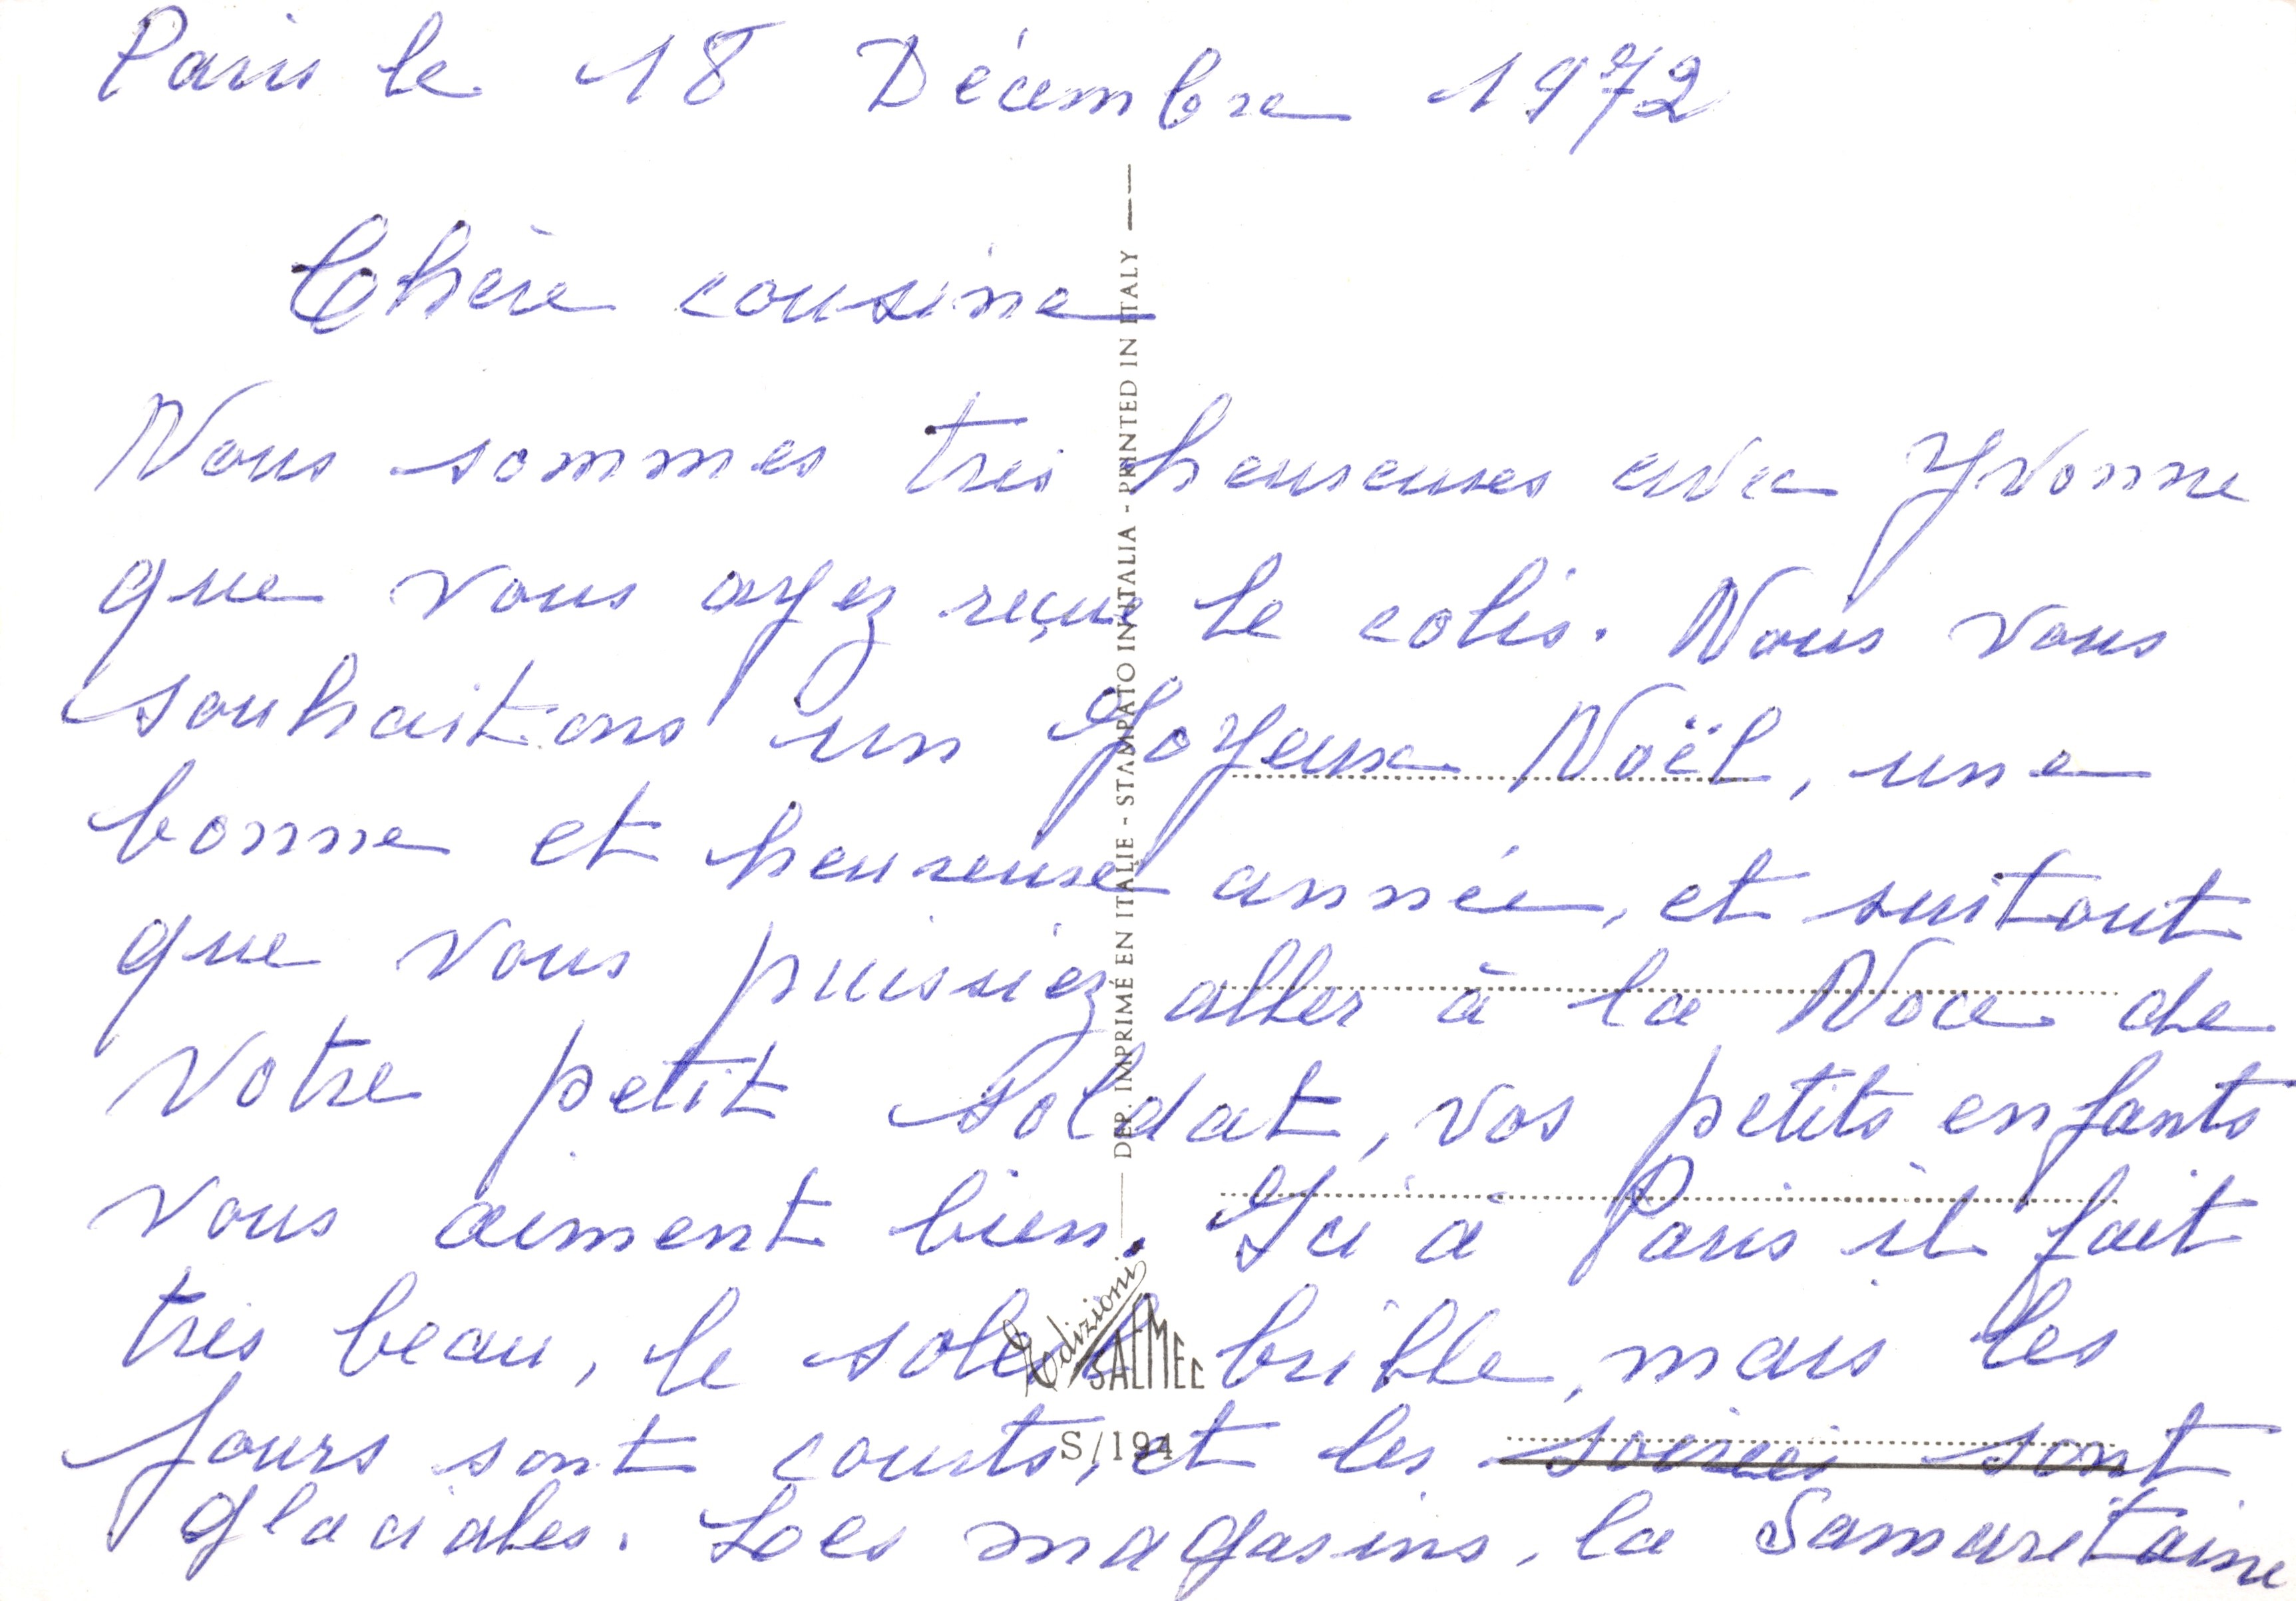 Paris le 18 Décembre 1972
Chère cousine
Nous sommes très heureuses avec Yvonne
que vous ayez reçue le colis. Nous vous
souhaitons un Joyeux Noël, une
bonne et heureuse année, et surtout
que vous puissiez aller à la Noce de
votre petit soldat, vos petits enfants
vous aiment bien. Ici à Paris il fait
très beau, le soleil brille, mais les
jours sont courts, et les soirées sont
glaciales. Les magasins, la Samaritaine
DEP. IMPRIMÉ EN ITALIE - STAMPATO IN ITALIA - PRINTED IN ITALY
Edizioni
SAEMEC
S/194